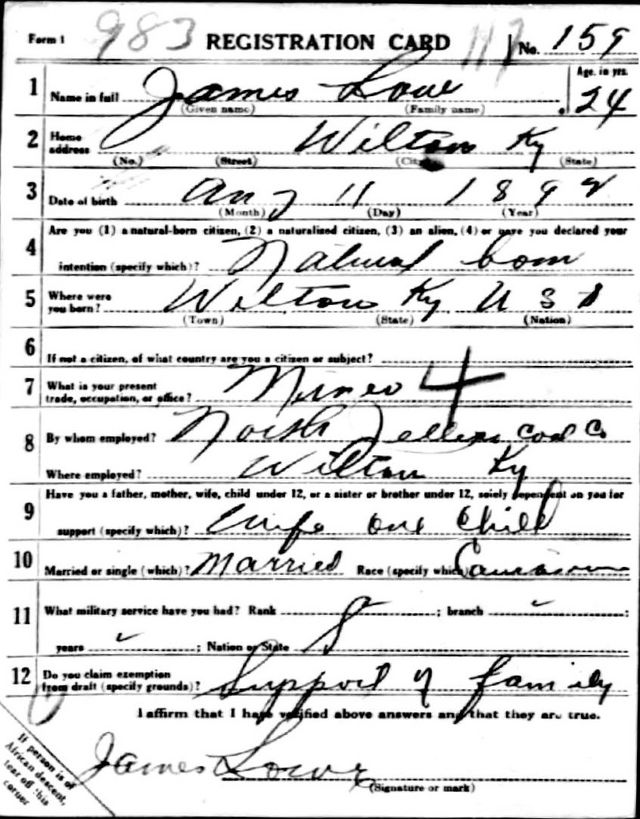 Form 1 983 REGISTRATION CARD 117 No. 159
1 Name in full James Lowe Age, in yrs.
(Given name) (Family name) 24
2 Home address Wilton Ky
(No.) (Street) (City) (State)
3 Date of birth Aug 11 1892
(Month) (Day) (Year)
4 Are you (1) a natural-born citizen, (2) a naturalized citizen, (3) an alien, (4) or have you declared your
intention (specify which)? Natural born
5 Where were you born? Wilton Ky U S A
(Town) (State) (Nation)
6 If not a citizen, of what country are you a citizen or subject?
7 What is your present trade, occupation, or office? Miner 4
8 By whom employed? North Coal Co
Where employed? Wilton Ky
9 Have you a father, mother, wife, child under 12, or a sister or brother under 12, solely dependent on you for
support (specify which)? Wife one child
10 Married or single (which)? Married Race (specify which) Caucasian
11 What military service have you had? Rank ; branch ;
years ; Nation or State
12 Do you claim exemption from draft (specify grounds)? Support of family
I affirm that I have verified above answers and that they are true.
James Lowe
(Signature or mark)
If person is of
African descent,
tear off this
corner